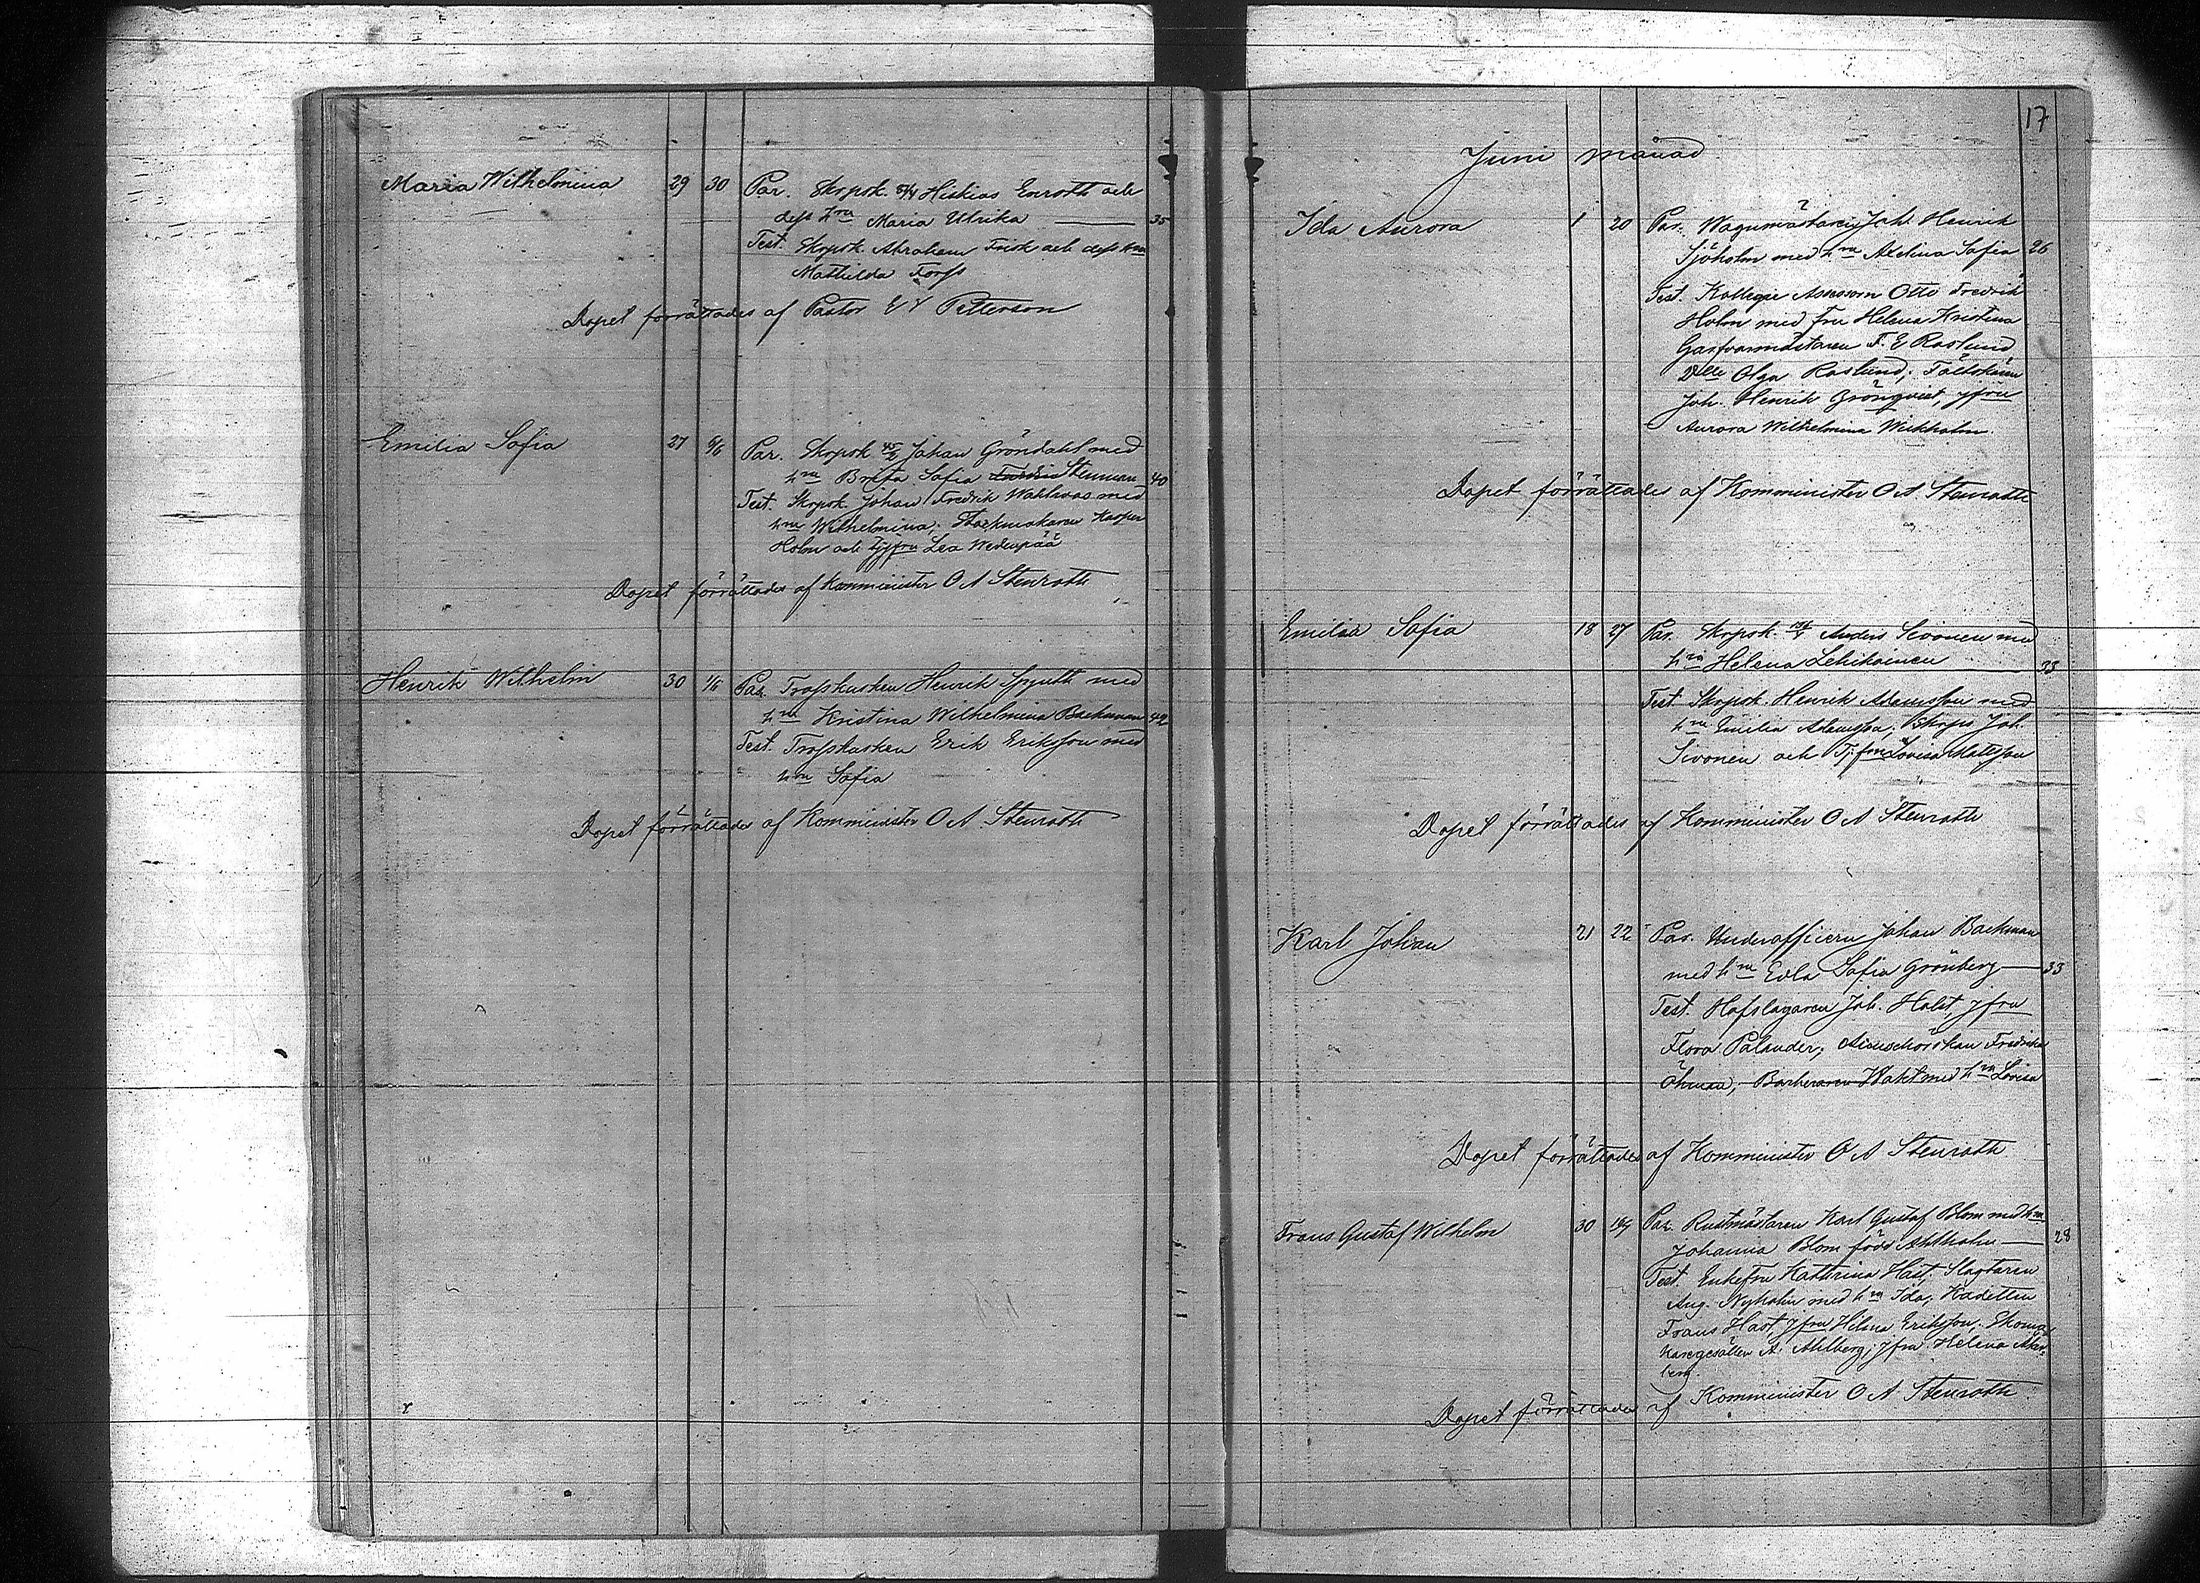 Maria Wilhelmina 29 30 Par. Skrpsk. Hiskias Enroth och
dess hru Maria Ulrika 35
Test. Skrpsk. Abraham Frisk och dess hru
Mathilda Forss
Dopet förrättades af Pastor Petterson
Emilia Sofia 27 6/6 Par. Skrpsk. Johan Gröndahl med
hru Brita Sofia Stenman 40
Test. Skrpsk. Johan Fredrik Wahlroos med
hru Wilhelmina; Kasper
Holm och Lea Wedenpää
Dopet förrättades af Komminister O A Stenroth
Henrik Wilhelm 30 1/6 Par. Trosskusken Henrik med
hru Kristina Wilhelmina Backman 42
Test. Trosskusken Erik Eriksson med
hru Sofia
Dopet förrättades af Komminister O A Stenroth
17
Juni månad
Ida Aurora 1 20 Par. Wagnmästaren Joh. Henrik
Sjöholm med hru Adelina Sofia 26
Test. Kollegie Assessorn Otto Fredrik
Holm med Fru Helena Kristina
Garfvaremästaren F. E Roslund
Dlle Olga Roslund;
Joh. Henrik Grönqvist, jfru
Aurora Wilhelmina Wickholm.
Dopet förrättades af Komminister O A Stenroth
Emilia Sofia 18 27 Par. Skrpsk. Anders Sivonen med
hru Helena Lehikoinen 33
Test Skrpsk. Henrik Adamsson med
hru Emilia Adamsson; Skrpsk Joh.
Sivonen och Tj. fru Lovisa Mattsson
Dopet förrättades af Komminister O A Stenroth
Karl Johan 21 22 Par. Underofficern Johan Backman
med hru Edla Sofia Grönberg 33
Test. Hofslagaren Joh. Holst, jfru
Flora Palander; Fredrika
Öhman, Barberaren Wahl med hru Lovisa
Dopet förrättades af Komminister O A Stenroth
Frans Gustaf Wilhelm 30 Par. Rustmästaren Karl Gustaf Blom med hru
Johanna Blom född Ahlholm 28
Test. Enkefru Katarina Hast, Slagtaren
Aug. Nyholm med hru Ida, Kadetten
Frans Hast, jfru Hilma Eriksson, Skoma-
karegesällen A. Ahlberg, jfru Helena

Dopet förrättades af Komminister O A Stenroth